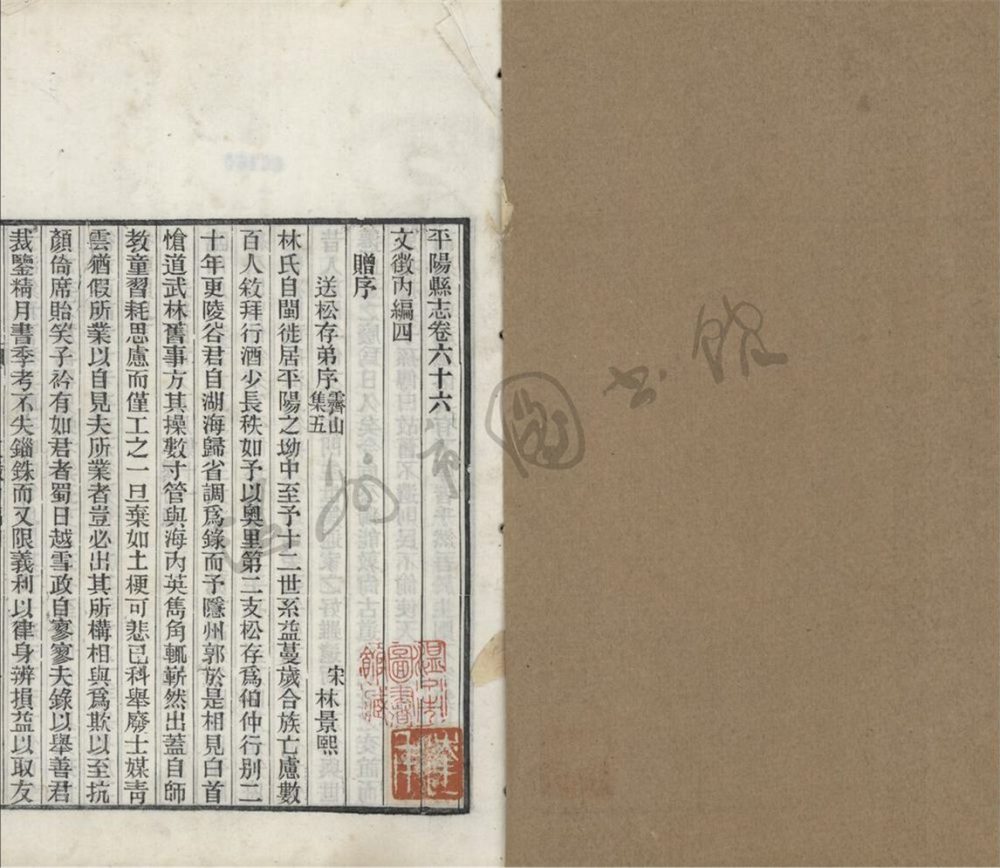 平陽縣志卷六十六
文徵內編四
贈序
送松存弟序霽山集五
宋林景熙
林氏自閩徙居平陽之坳中至予十二世系益蔓歲合族亡慮數
百人敘拜行酒少長秩如予以輿里第二支松存爲伯仲行别二
十年更陵谷君自湖海歸省調爲錄而予隱州郭於是相見白首
愴道武林舊事方其操數寸管與海內英雋角輒嶄然出蓋自師
教童習耗思慮而僅工之一旦棄如土梗可悲已科舉廢士媒靑
雲猶假所業以自見夫所業者豈必出其所構相與爲欺以至抗
顏倚席貽笑子衿有如君者蜀日越雪政自寥寥夫錄以舉善君
裁鑒精月書季考不失錙銖而又限義利以律身辨損益以取友
溫州市圖書館
溫州市圖書館藏